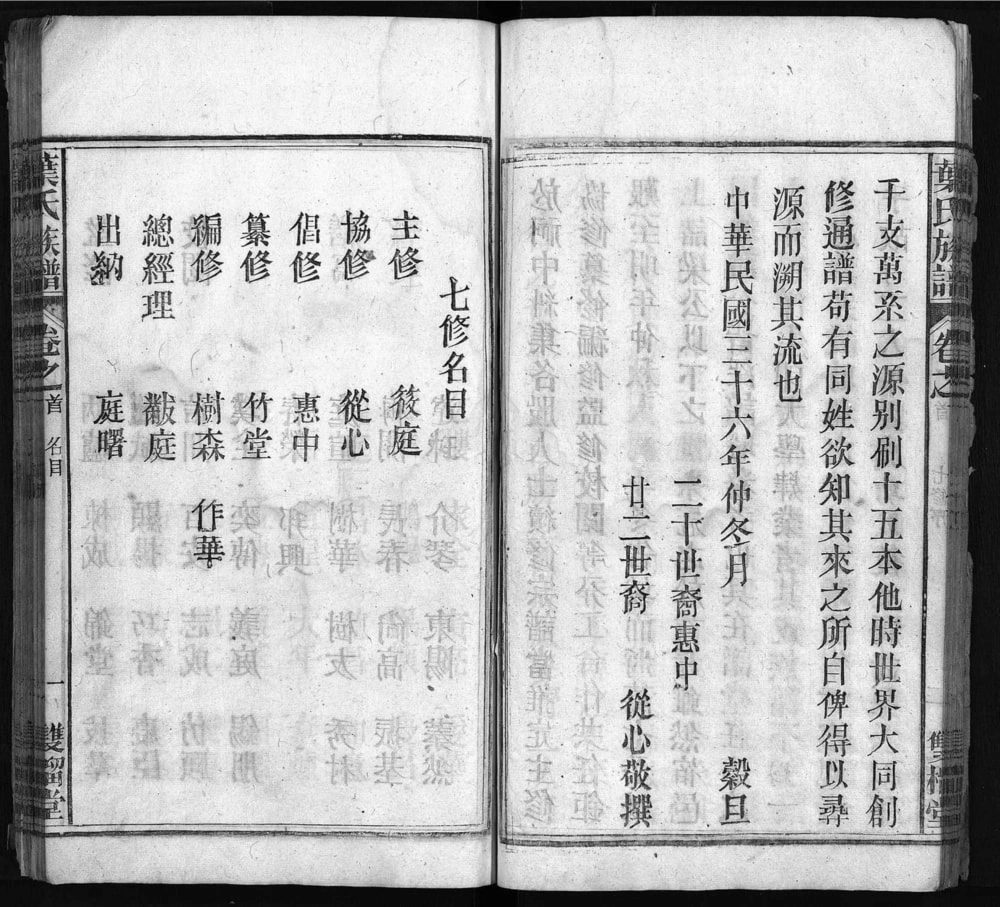 葉氏族譜 卷之首 七修序
千支萬系之源别刷十五本他時世界大同創
修通譜苟有同姓欲知其來之所自俾得以尋
源而溯其流也
中華民國三十六年仲冬月 穀旦
二十世裔惠中
廿二世裔 從心敬撰
七修名目
主修 筱庭
協修 從心
倡修 惠中
纂修 竹堂
編修 樹森 作華
總經理 黻庭
出納 庭曙
葉氏族譜 卷之首 名目 一 雙溜堂